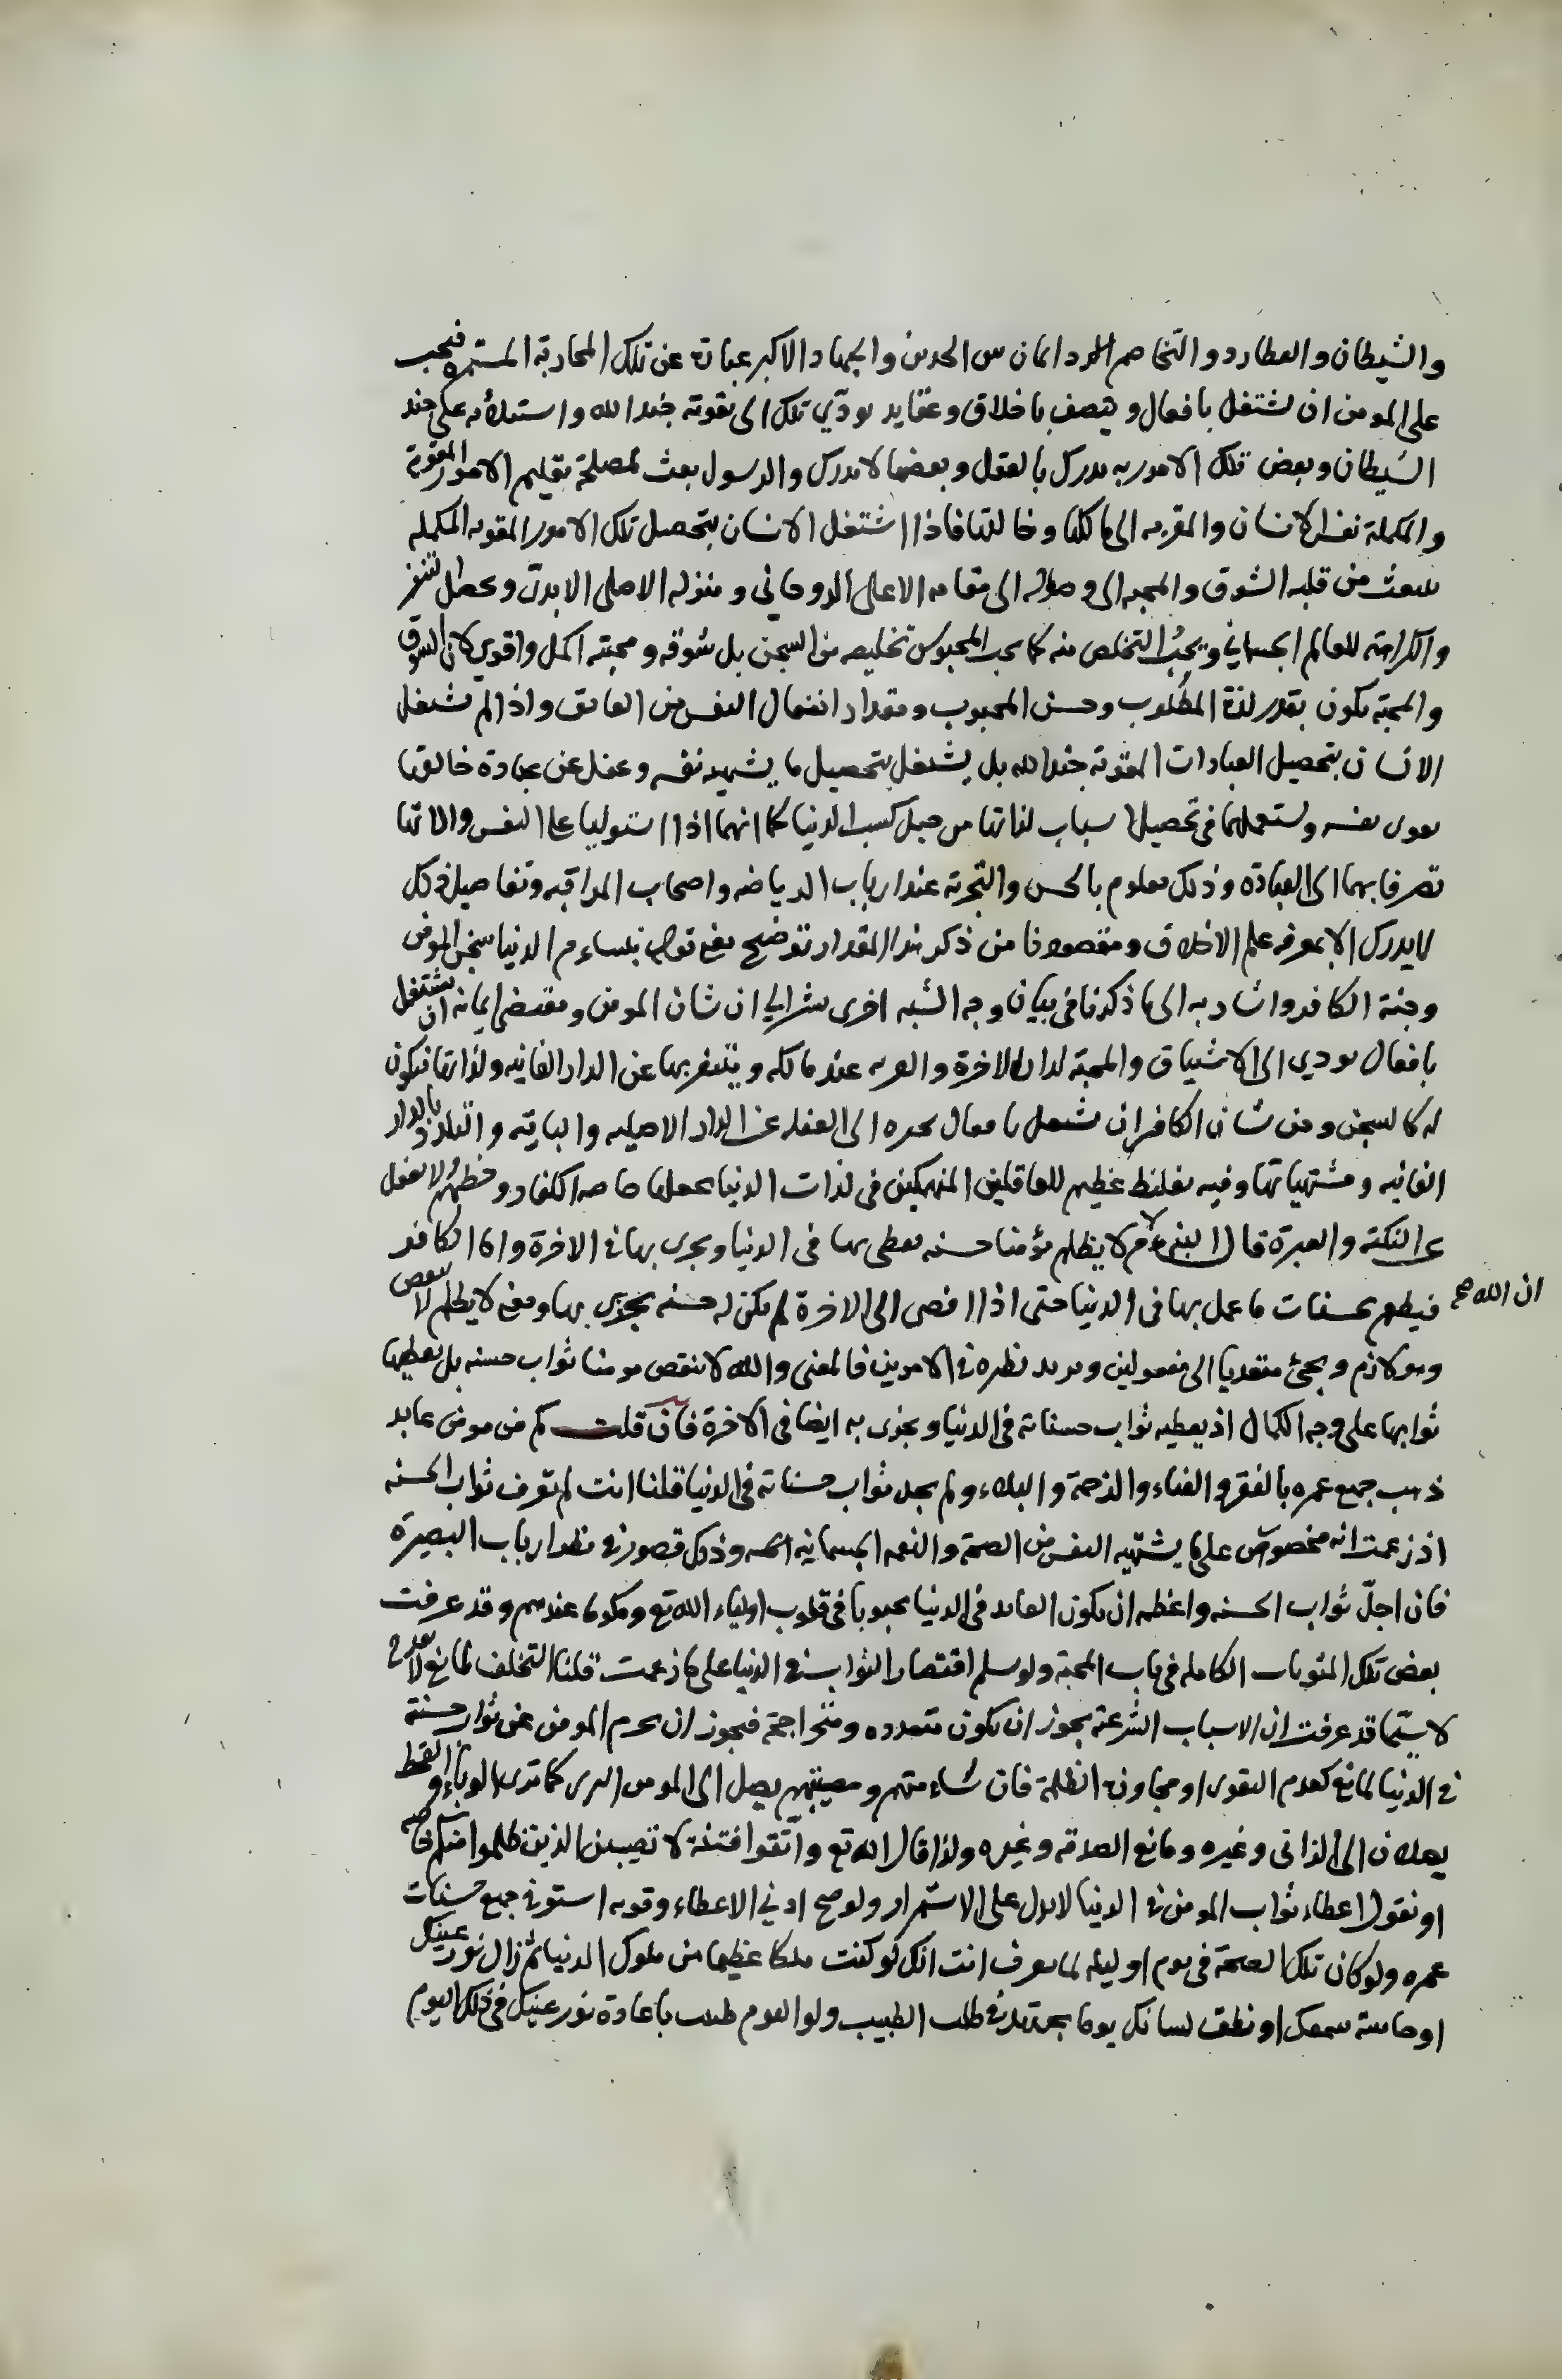 والشيطان والعطارد والتخاصم دايمان بين الحدين والجهاد الاكبر عبارة عن تلك المحاربة المستمرة فيجب
على المومن ان يشتغل بافعال ويتصف باخلاق وعقايد يودي تلك الى تقوية جند الله واستيلائه على جند
الشيطان وبعض تلك الامور يدرك بالعقل وبعضها لا يدرك والرسول بعث لمصلحة تعليم الامور المقوية
والمكملة نفس الانسان والمقربه الى مالكها وخالقها فاذا اشتغل الانسان بتحصيل تلك الامور المقويه المكمله
ينبعث من قلبه الشوق والمحبه الى وصوله الى مقامه الاعلى الروحاني ومنزله الاصلى الابدي ويحصل التنفر
والكراهة للعالم الجسماني ويحب التخلص منه كما يحب المحبوس تخليصه من السجن بل شوقه ومحبته اكمل واقوى لان الشوق
والمحبة يكون بقدر لذة المطلوب وحسن المحبوب ومقدار انفصال النفس من العايق واذا لم يشتغل
الانسان بتحصيل العبادات المقوية جند الله بل يشتغل بتحصيل ما يشتهيه نفسه وغفل عن عبادة خالقها
يقوى نفسه ويستعملها في تحصيل اسباب لذاتها من قبل كسب الدنيا كما انهما اذا استوليا على النفس والاتها
تصرفا بهما الى العبادة وذلك معلوم بالحس والتجربة عند ارباب الرياضه واصحاب المراقبه وتفاصيل ذلك
لا يدرك الا بمعرفه علم الاخلاق ومقصودنا من ذكر هذا المقدار توضيح معنى قوله الدنيا سجن المومن
وجنة الكافر واشار به الى ما ذكرنا في بيان وجه الشبه اخرى يشير الى ان شان المومن ومقتضى ايمانه ان يشتغل
بافعال يودي الى الاشتياق والمحبة لدار الاخرة والقرب عند مالكه ويتنفر بها عن الدار الفانيه ولذاتها فيكون
له كالسجن ومن شان الكافر ان يشتغل بافعال يجره الى الغفله عن الدار الاصليه والباقيه والتلذذ بالدار
الفانيه ومشتهياتها وفيه تغليظ عظيم للعاقلين المنهمكين في لذات الدنيا بجعلها خاصه الكفار وحظهم لا يغفل
عن النكتة والعبرة قال النبي ع م لا يظلم مؤمنا حسنه يعطى بها في الدنيا ويجزى بها في الاخرة واما الكافر
ان الله صح
فيطعم بحسنات ما عمل بها في الدنيا حتى اذا افضى الى الاخرة لم يكن له حسنه يجزى بها ومعنى لا يظلم لا ينقص
وهو لازم ويجئ متعديا الى مفعولين ويريد نظره في الامرين فالمعنى والله لا ينقص مومنا ثواب حسنه بل يعطيها
ثوابها على وجه الكمال اذ يعطيه ثواب حسناته في الدنيا ويجزى به ايضا في الاخرة فان قلت كم من مومن عابد
ذهب جميع عمره بالفقر والفناء والزحمة والبلاء ولم يجد ثواب حسناته في الدنيا قلنا انت لم تعرف ثواب الحسنه
اذ زعمت انه مخصوص على ما يشتهيه النفس من الصحة والنعمه الجسمانيه الحسيه وذلك قصور في نظر ارباب البصيرة
فان اجلّ ثواب الحسنه واعظمه ان يكون العابد في الدنيا محبوبا في قلوب اولياء الله تع ومكرما عندهم وقد عرفت
بعض تلك المثوبات الكامله في باب المحبة ولو سلم اقتصار الثواب في الدنيا على ما زعمت قلنا التخلف لمانع لا يقدح
لاسيما قد عرفت ان الاسباب الشرعية يجوز ان يكون متعدده ومتزاحمة فيجوز ان يحرم المومن عن ثواب حسنته
في الدنيا لمانع كعدم التقوى او مجاورة الظلمة فان شامتهم ومصيبتهم يصل الى المومن البرى كما ترى الوباء والقحط
يصلان الى الزاني وغيره ومانع الصدقه وغيره ولذا قال الله تع واتقوا فتنة لا تصيبن الذين ظلموا منكم خاصه
او نقول اعطاء ثواب المومن في الدنيا لا يدل على الاستمرار ولو صح ادني الاعطاء وقوبه استوفى جميع حسنات
عمره ولو كان تلك الصحة في يوم او ليله لما يعرف انت انك لو كنت ملكا عظيما من ملوك الدنيا ثم زال نور عينيك
او حاسة سمعك او نطق لسانك يوما يجتهد في طلب الطبيب ولو القوم طلب باعادة نور عينيك في ذلك اليوم